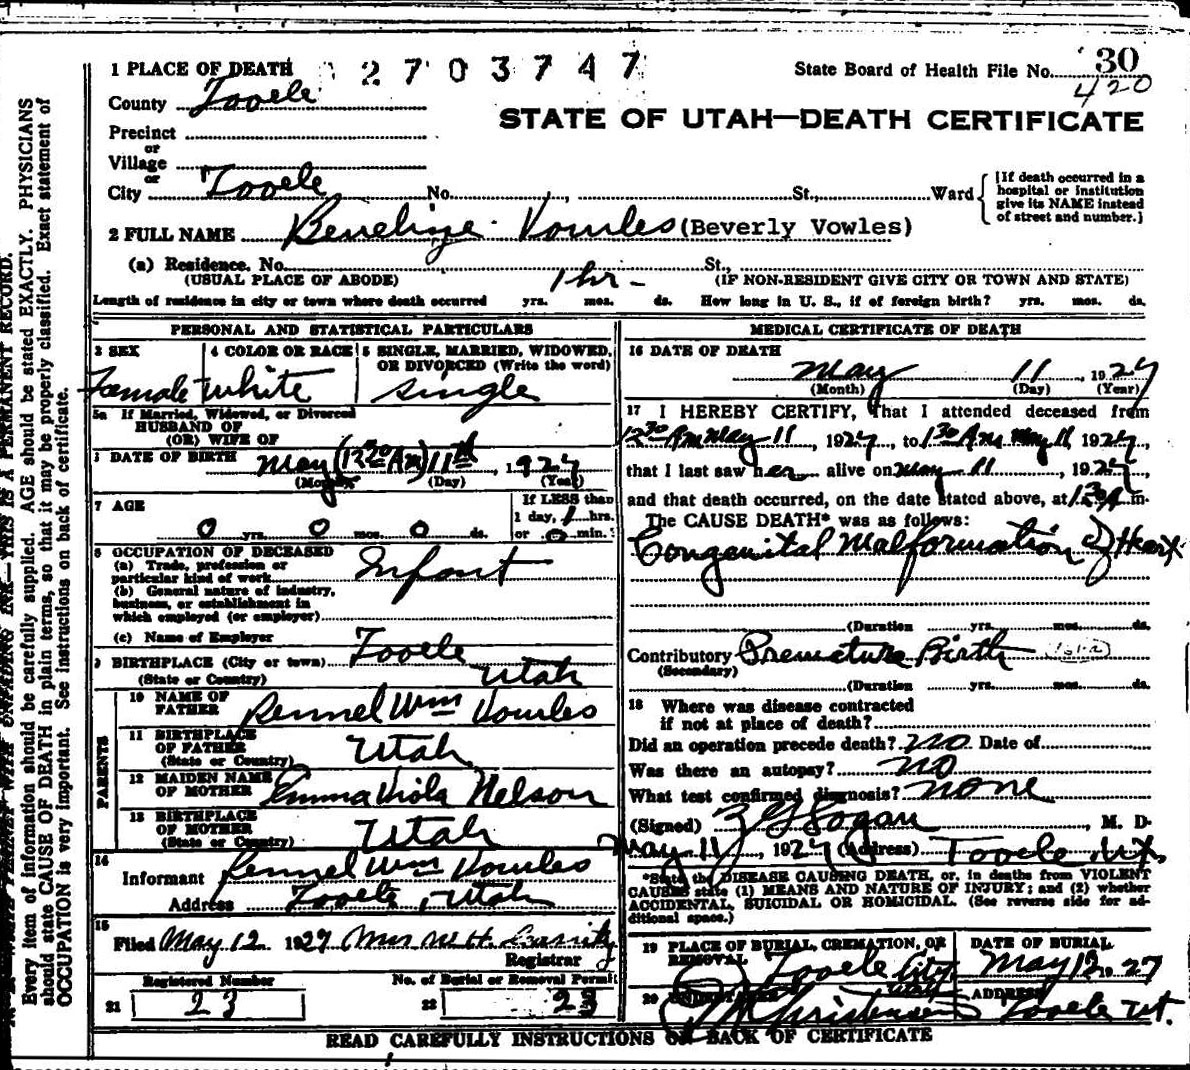 1 PLACE OF DEATH 2703747 State Board of Health File No. 30
420
County Tooele
STATE OF UTAH—DEATH CERTIFICATE
Precinct
or
Village
or
City Tooele No. , St., Ward
[If death occurred in a
hospital or institution
give its NAME instead
of street and number.]
2 FULL NAME Vowles (Beverly Vowles)
(a) Residence. No. St.,
(USUAL PLACE OF ABODE) 1 hr - (IF NON-RESIDENT GIVE CITY OR TOWN AND STATE)
Length of residence in city or town where death occurred yrs. mos. ds. How long in U. S., if of foreign birth? yrs. mos. ds.
PERSONAL AND STATISTICAL PARTICULARS
3 SEX 4 COLOR OR RACE 5 SINGLE, MARRIED, WIDOWED,
OR DIVORCED (Write the word)
Female White Single
5a If Married, Widowed, or Divorced
HUSBAND OF
(OR) WIFE OF
DATE OF BIRTH May (12 30 AM) 11th, 1927
(Month) (Day) (Year)
7 AGE If LESS than
1 day, 1 hrs.
0 yrs. 0 mos. 0 ds. or 0 min.
8 OCCUPATION OF DECEASED
(a) Trade, profession or
particular kind of work Infant
(b) General nature of industry,
business, or establishment in
which employed (or employer)
(c) Name of Employer
9 BIRTHPLACE (City or town) Tooele
(State or Country) Utah
PARENTS
10 NAME OF
FATHER Rennel Wm Vowles
11 BIRTHPLACE
OF FATHER Utah
(State or Country)
12 MAIDEN NAME
OF MOTHER Emma Viola Nelson
13 BIRTHPLACE
OF MOTHER Utah
(State or Country)
14
Informant Rennel Wm Vowles
Address Tooele, Utah
15
Filed May 12 1927 Mrs W H
Registrar
Registered Number No. of Burial or Removal Permit
21 23 22 23
MEDICAL CERTIFICATE OF DEATH
16 DATE OF DEATH
May 11, 1927
(Month) (Day) (Year)
17 I HEREBY CERTIFY, That I attended deceased from
12 30 AM May 11, 1927, to 1 30 AM May 11 1927,
that I last saw her alive on May 11, 1927,
and that death occurred, on the date stated above, at 1 30 A m.
The CAUSE DEATH* was as follows:
Congenital Malformation of Heart
(Duration yrs. mos. ds.
Contributory Premature Birth
(Secondary)
(Duration yrs. mos. ds.
18 Where was disease contracted
if not at place of death?
Did an operation precede death? No Date of
Was there an autopsy? no
What test confirmed diagnosis? none
(Signed) , M. D.
May 11, 1927 (Address) Tooele, Ut.
*State the DISEASE CAUSING DEATH, or, in deaths from VIOLENT
CAUSES state (1) MEANS AND NATURE OF INJURY; and (2) whether
ACCIDENTAL, SUICIDAL OR HOMICIDAL. (See reverse side for ad-
ditional space.)
19 PLACE OF BURIAL, CREMATION, OR
REMOVAL Tooele City
DATE OF BURIAL
May 12 1927
20 Christensen
ADDRESS
Tooele Ut.
READ CAREFULLY INSTRUCTIONS ON BACK OF CERTIFICATE
Every item of information should be carefully supplied. AGE should be stated EXACTLY. PHYSICIANS
should state CAUSE OF DEATH in plain terms, so that it may be properly classified. Exact statement of
OCCUPATION is very important. See instructions on back of certificate.